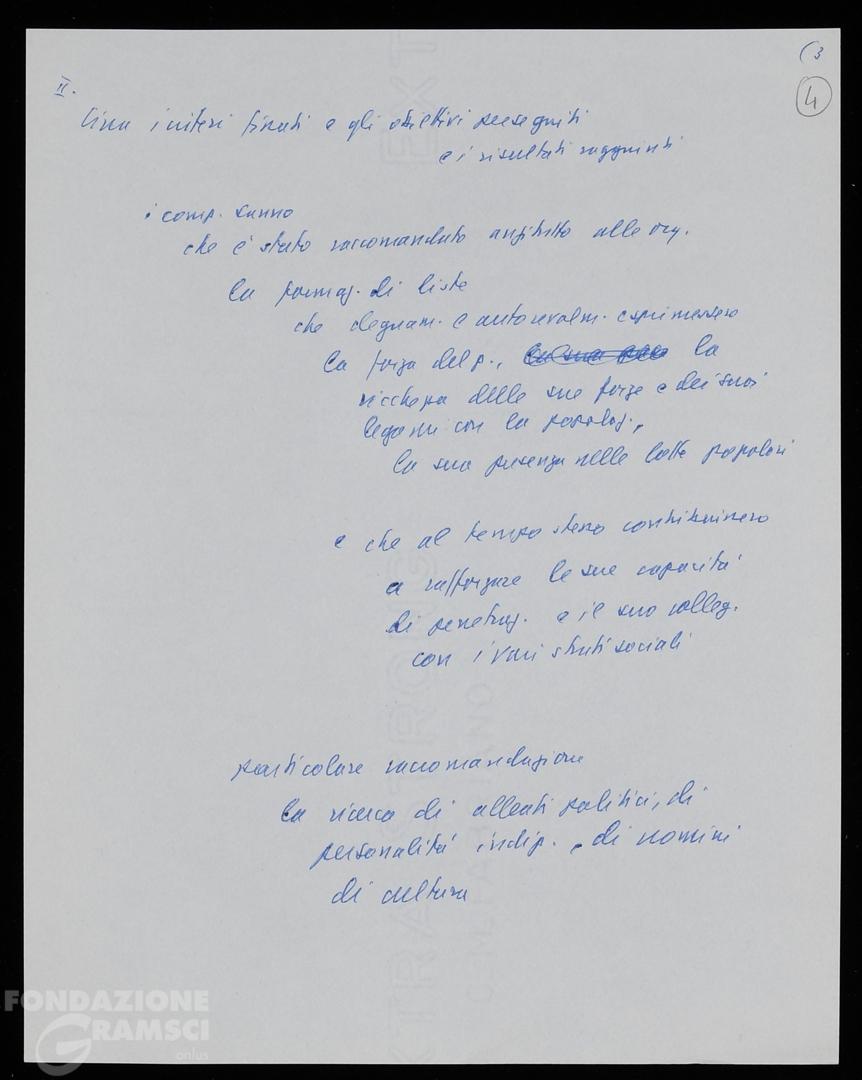 (3
4
II.
Circa i criteri fissati e gli obiettivi perseguiti
e i risultati raggiunti
i comp. sanno
che è stato raccomandato anzitutto alle org.
la formaz. di liste
che degnam. e autorevolm. esprimessero
la forza del p., la
ricchezza delle sue forze e dei suoi
legami con la popolaz.,
la sua presenza nelle lotte popolari
e che al tempo stesso contribuissero
a rafforzare le sue capacità
di penetraz. e il suo colleg.
con i vari strati sociali
particolare raccomandazione
la ricerca di alleati politici, di
personalità indip. e di uomini
di cultura
FONDAZIONE
GRAMSCI
onlus